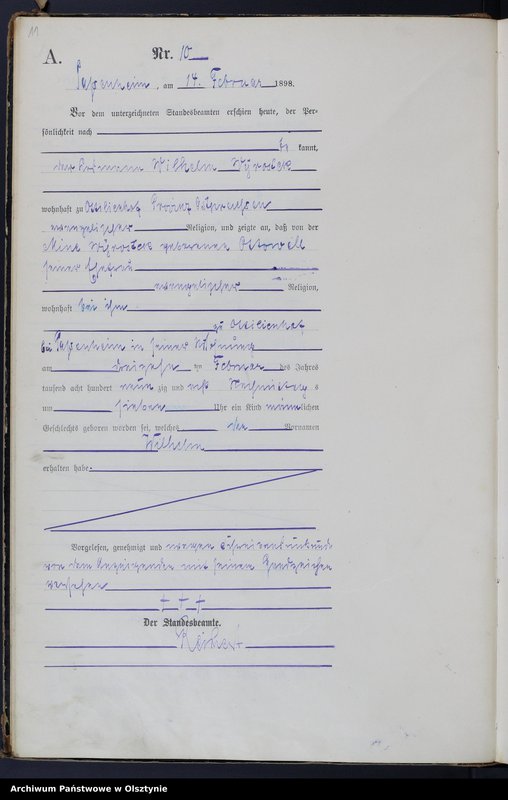 11
A.
Nr. 10
Papenheim, am 14. Februar 1898.
Vor dem unterzeichneten Standesbeamten erschien heute, der Per-
sönlichkeit nach
be kannt,
der Wilhelm Wyrostek
wohnhaft zu Ottilienhof Provinz Ostpreussen
evangelischer Religion, und zeigte an, daß von der
Mine Wyrostek geborenen
seiner Ehefrau
evangelischer Religion,
wohnhaft bei ihm
zu Ottilienhof
bei Papenheim in seiner Wohnung
am dreizehn ten Februar des Jahres
tausend acht hundert neun zig und acht Nachmittag s
um sieben Uhr ein Kind männlichen
Geschlechts geboren worden sei, welches den Vornamen
Wilhelm
erhalten habe.
Vorgelesen, genehmigt und wegen Schreibensunkunde
von dem Anzeigenden mit seinem Handzeichen
versehen
+ + +
Der Standesbeamte.
Reichert
Archiwum Państwowe w Olsztynie